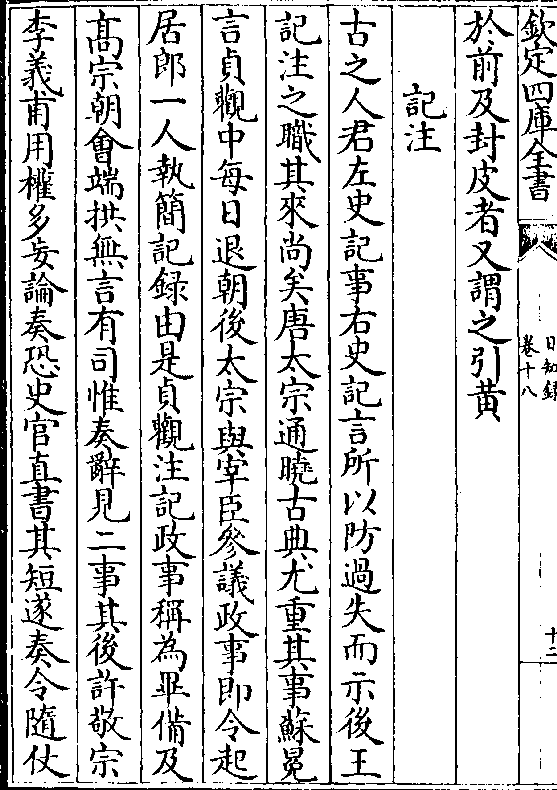 欽定四庫全書
日知錄
卷十八
十三
於前及封皮者又謂之引黄
記注
古之人君左史記事右史記言所以防過失而示後王
記注之職其來尚矣唐太宗通曉古典尤重其事蘇冕
言貞觀中每日退朝後太宗與宰臣參議政事即令起
居郎一人執簡記録由是貞觀注記政事稱為畢備及
髙宗朝會端拱無言有司惟奏辭見二事其後許敬宗
李義甫用權多妄論奏恐史官直書其短遂奏令隨仗